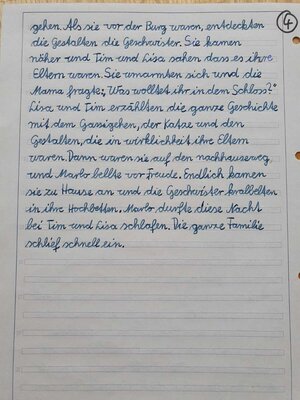 4
gehen. Als sie vor der Burg waren, entdeckten
die Gestalten die Geschwister. Sie kamen
näher und Tim und Lisa sahen dass es ihre
Eltern waren. Sie umarmten sich und die
Mama fragte: „Was wolltet ihr in dem Schloss?"
Lisa und Tim erzählten die ganze Geschichte
mit dem Gassigehen, der Katze und den
Gestalten, die in wirklichkeit ihre Eltern
waren. Dann waren sie auf den nachhauseweg
und Marlo bellte vor Freude. Endlich kamen
sie zu Hause an und die Geschwister krabbelten
in ihre Hochbetten. Marlo durfte diese Nacht
bei Tim und Lisa schlafen. Die ganze Familie
schlief schnell ein.